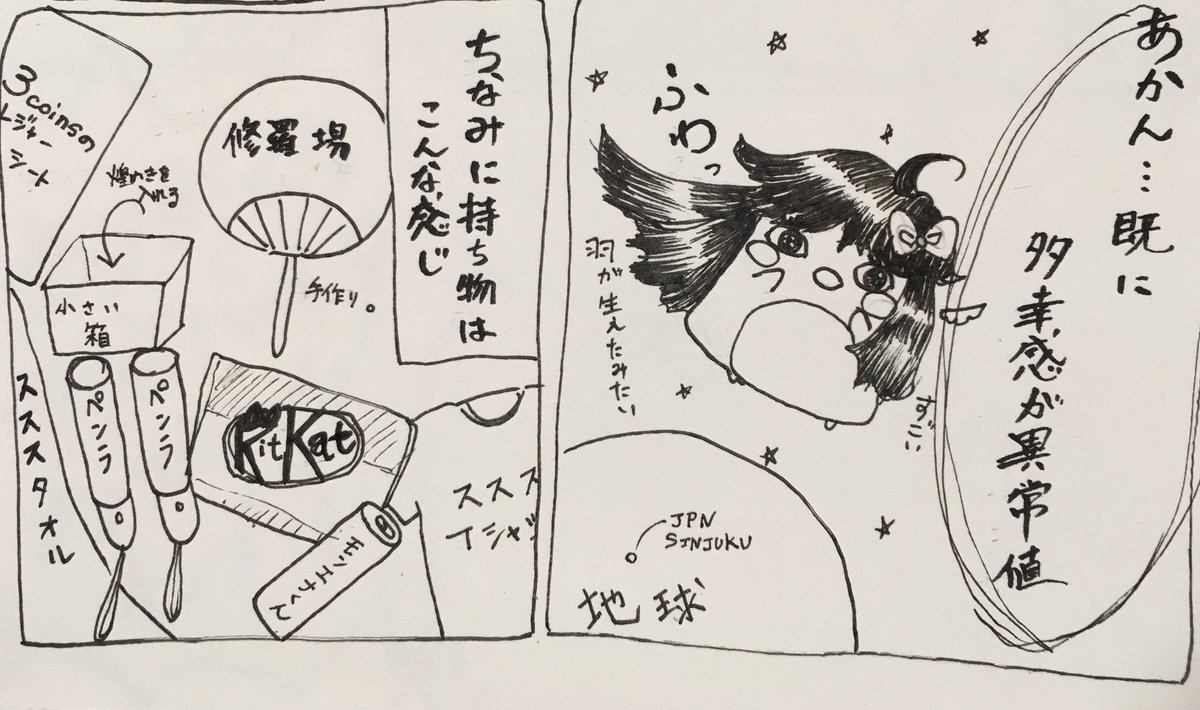 あかん…既に
多幸感が異常値
ふわっ
羽が生えたみたい
JPN
SINJUKU
地球
ちなみに持ち物は
こんな感じ
修羅場
手作り。
3coinsの
レジャー
シート
煌めきを
入れる
小さい
箱
ペンラ
ペンラ
KitKat
モンエナくん
ススス
Tシャツ
スススタオル